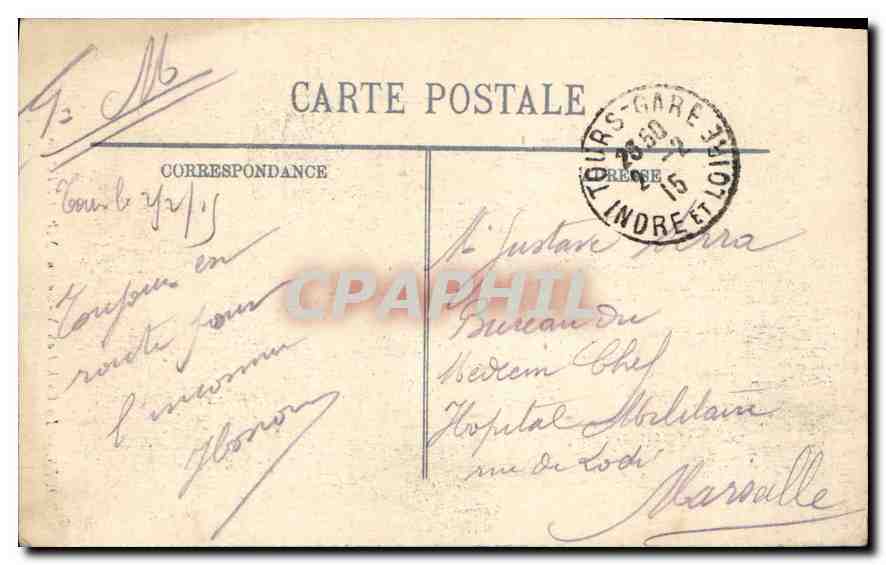 F M
CARTE POSTALE
TOURS-GARE
INDRE ET LOIRE
23 50
2 - 2
15
CORRESPONDANCE
ADRESSE
Tours le 2/2/15
Toujours en
route pour
l'inconnu
Mr Gustave Serra
Bureau du
Medecin Chef
Hopital Militaire
rue de Lodi
Marseille
CPAPHIL